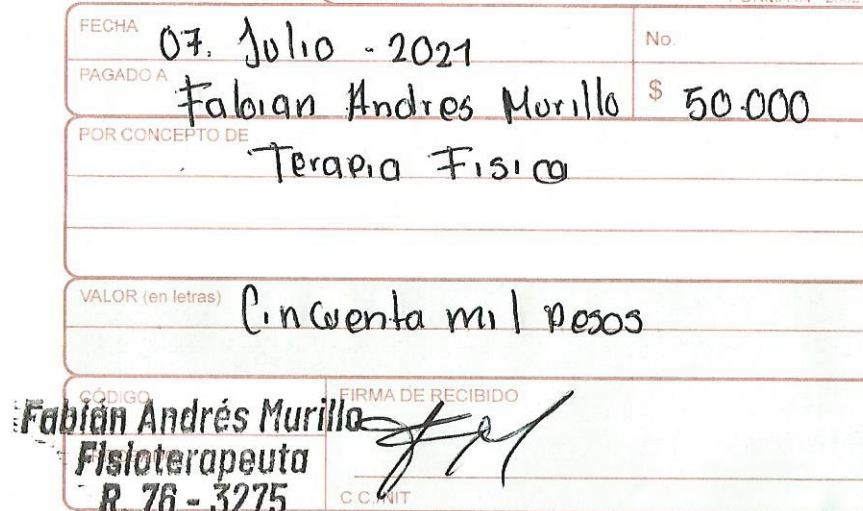 FECHA 07. Julio - 2021 No.
PAGADO A Fabian Andres Murillo $ 50.000
POR CONCEPTO DE
Terapia Fisica
VALOR (en letras) Cincuenta mil pesos
CÓDIGO FIRMA DE RECIBIDO
Fabián Andrés Murillo
Fisioterapeuta
R. 76 - 3275
C.C./NIT